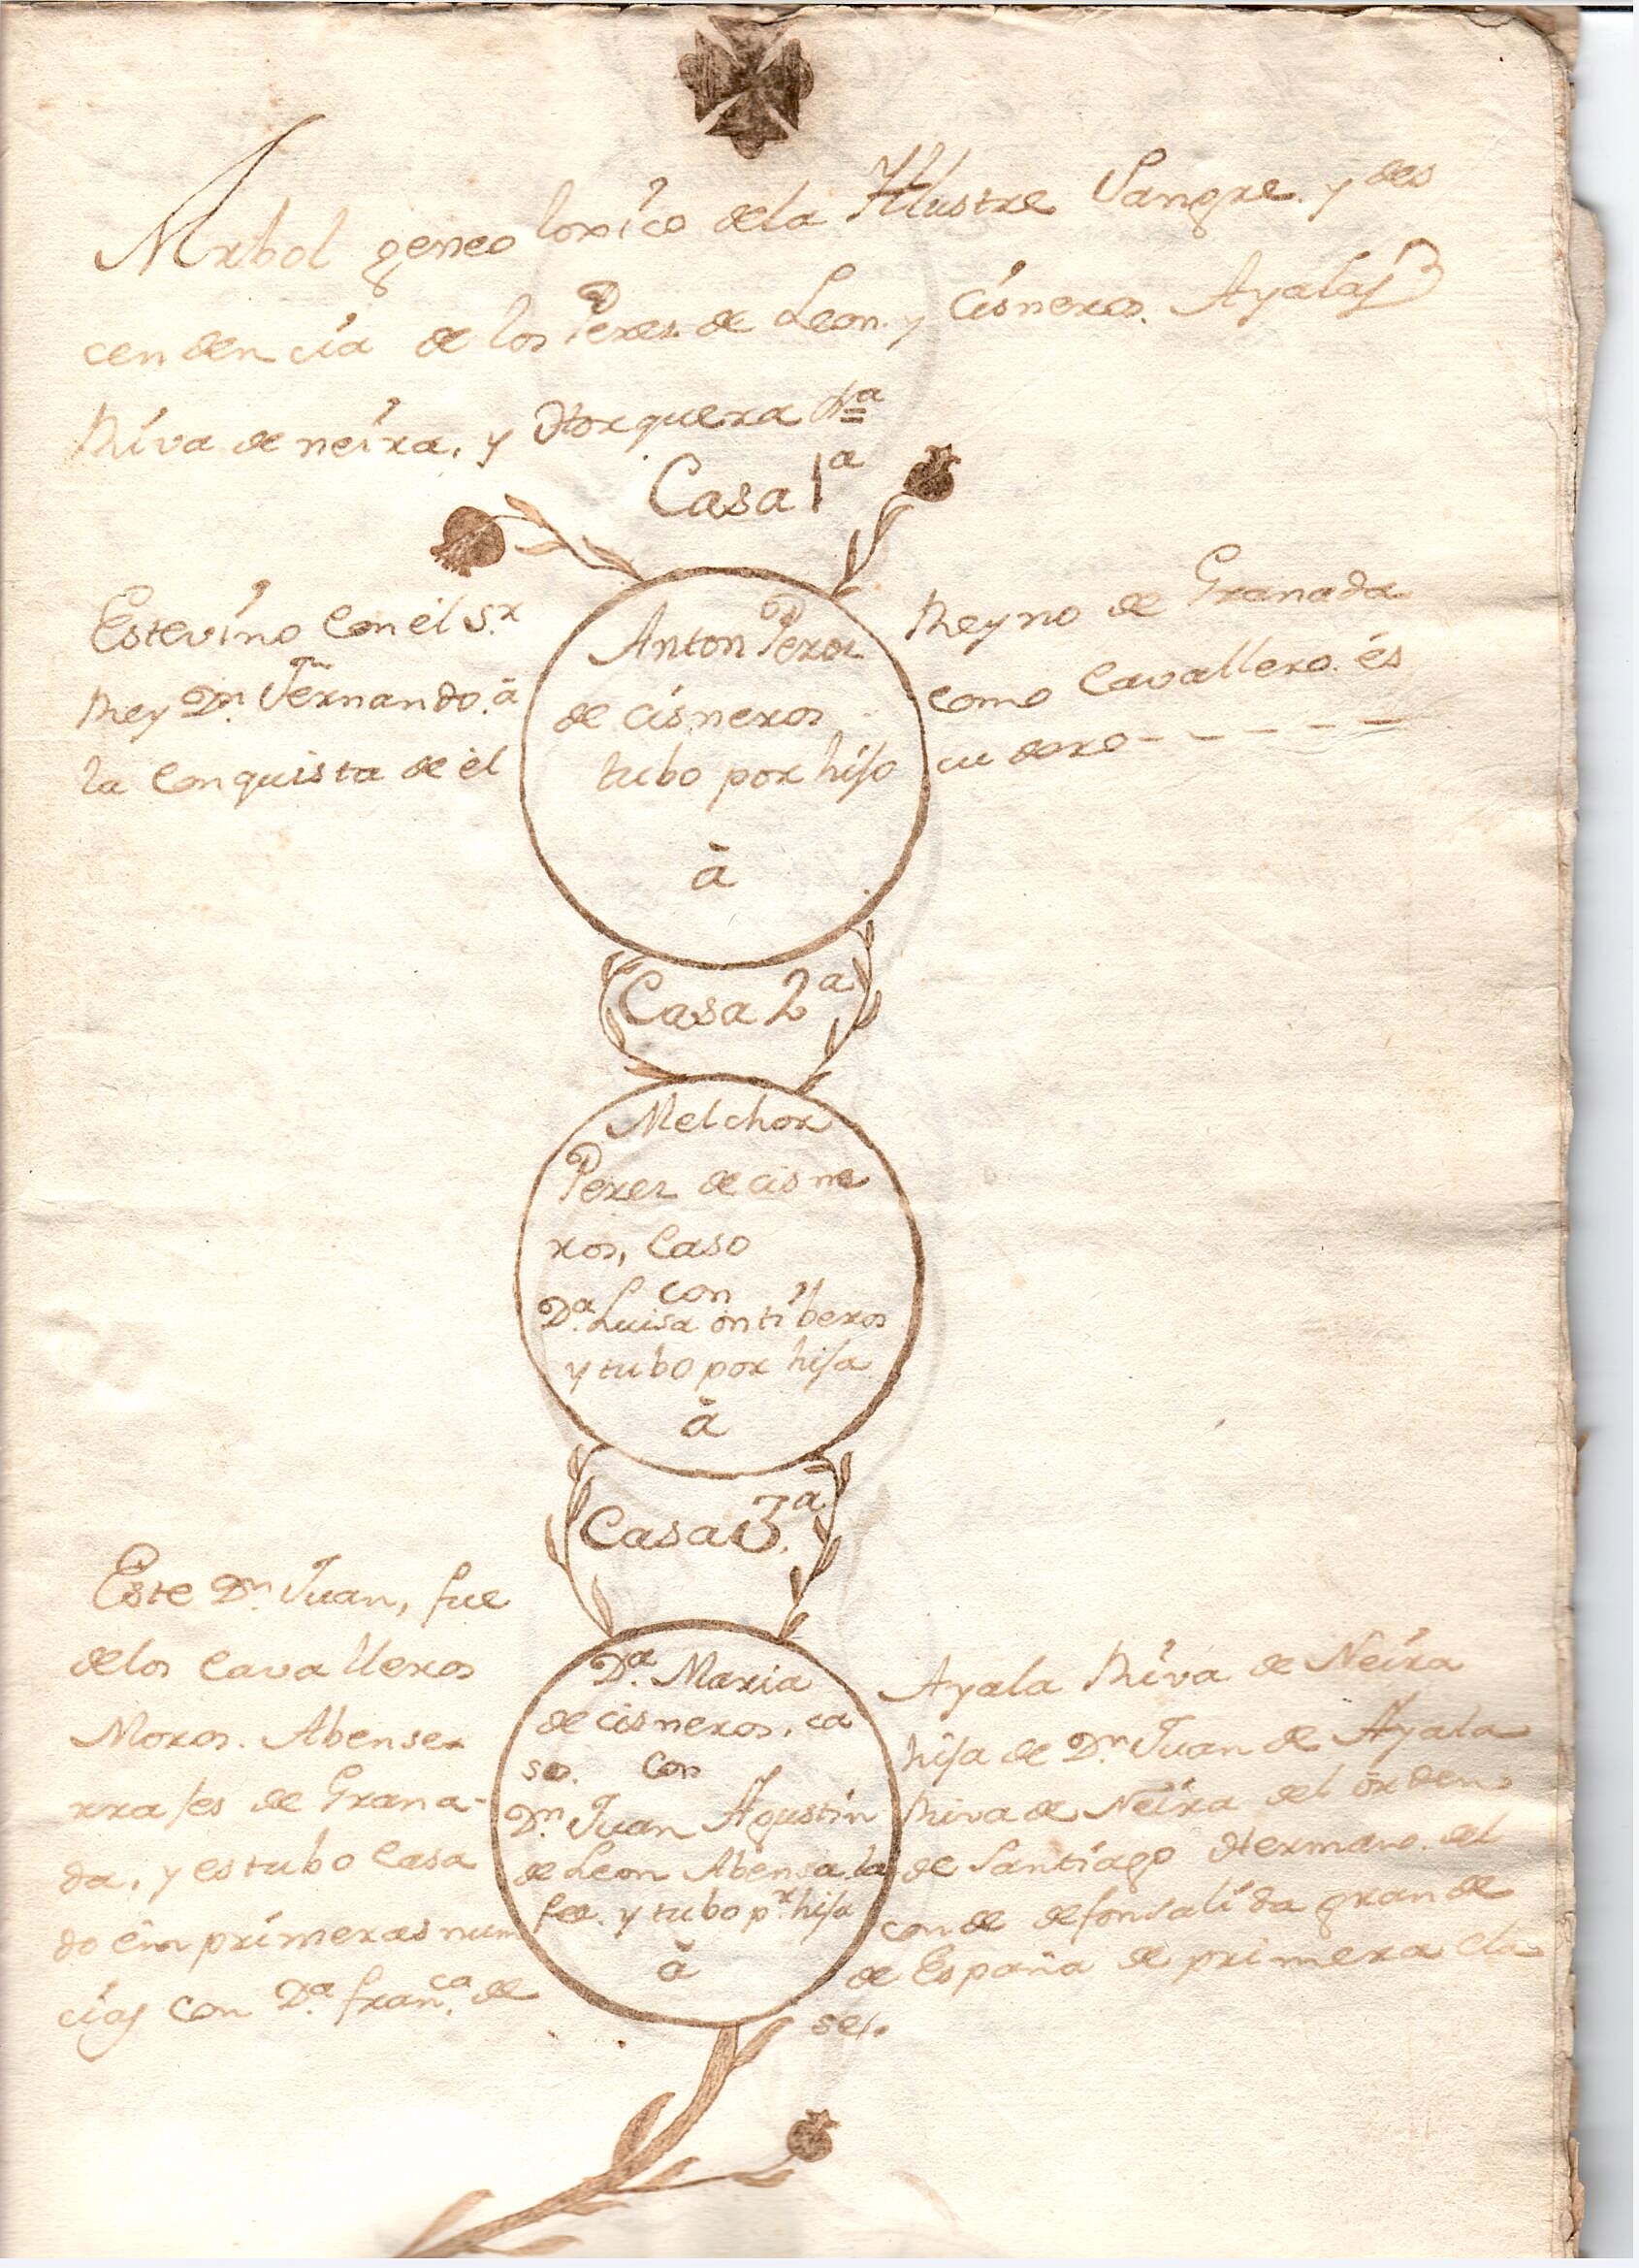 Arbol geneo loxico dela Yllustre Sangre. y des
cendencia de los Perez de Leon. y Cisneros. Ayalas
Riva de neira, y Horquera &ª
Casa 1ª
Este vino Con él S.r
Rey Dn. Fernando. á
la Conquista de él
Anton Perez
de cisneros
tubo por hijo
á
Reyno de Granada
como Cavallero. és
cudero - - - - - -
Casa 2ª
Melchor
Perez de cisne
ros, Caso
con
Dª. Luisa ontiberos
y tubo por hija
á
Casa 3ª.
Este Dn. Juan, fue
delos Cavalleros
Moros. Abense-
rrajes de Grana-
da, y estubo Casa
do én primeras num
cias con Dª. franca. de
Dª. Maria
de cisneros. ca
so. con
Dn. Juan Agustin
de Leon Abensa la
fee. y tubo pr. hija
á
Ayala Riva de Neira
hija de Dn. Juan de Ayala
Riva de Neira del órden
de Santiago Hermano. del
conde defonsalida grande
de España de primera cla
se.